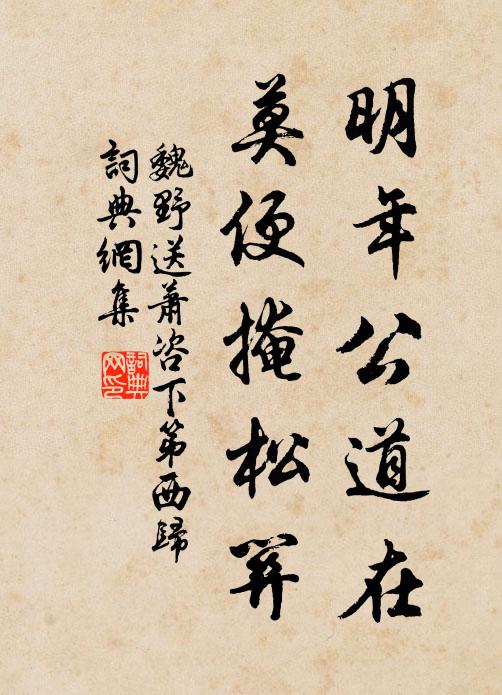 明年公道在
莫便掩松關
魏野送蕭咨下第西歸
詞典網集
詞典
网印